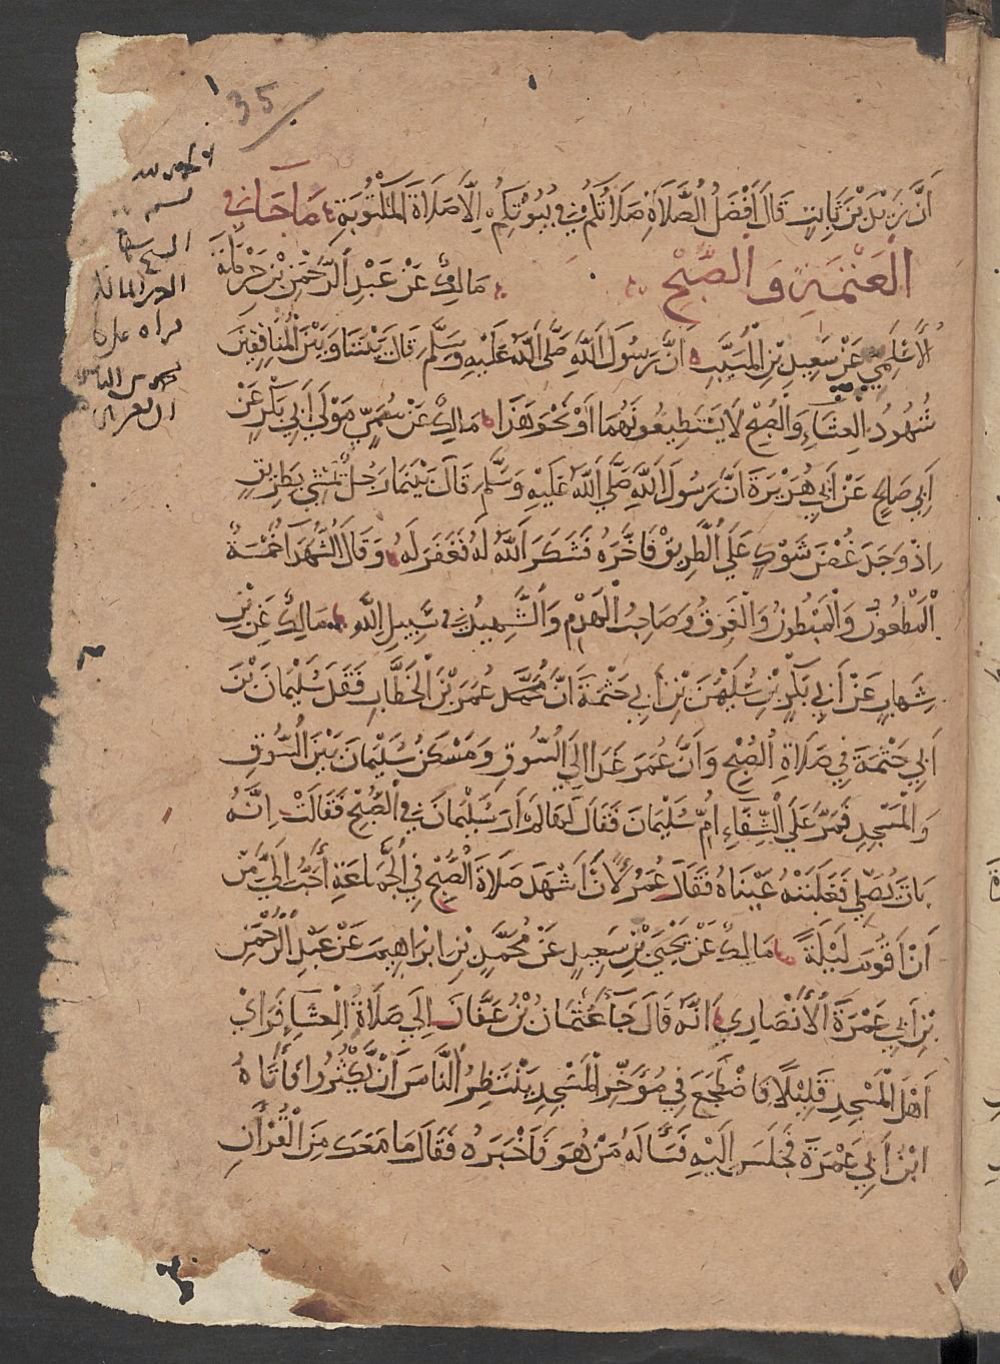 35
أَنَّ زَيْدَ بْنَ ثَابِتٍ قَالَ أَفْضَلُ الصَّلَاةِ صَلَاتُكُمْ فِي بُيُوتِكُمْ اِلَّا صَلَاةَ الْمَكْتُوبَةِ مَا جَاءَ فِي
الْعَتَمَةِ وَالصُّبْحِ مَالِكٌ عَنْ عَبْدِ الرَّحْمَنِ بْنِ حَرْمَلَةَ
الْأَسْلَمِيِّ عَنْ سَعِيدِ بْنِ الْمُسَيَّبِ أَنَّ رَسُولَ اللَّهِ صَلَّى اللَّهُ عَلَيْهِ وَسَلَّمَ قَالَ بَيْنَنَا وَبَيْنَ الْمُنَافِقِينَ
شُهُودُ الْعِشَاءِ وَالصُّبْحِ لَا يَسْتَطِيعُونَهُمَا أَوْ نَحْوَ هَذَا مَالِكٌ عَنْ سُمَيٍّ مَوْلَى أَبِي بَكْرٍ عَنْ
أَبِي صَالِحٍ عَنْ أَبِي هُرَيْرَةَ أَنَّ رَسُولَ اللَّهِ صَلَّى اللَّهُ عَلَيْهِ وَسَلَّمَ قَالَ بَيْنَمَا رَجُلٌ يَمْشِي بِطَرِيقٍ
اِذْ وَجَدَ غُصْنَ شَوْكٍ عَلَى الطَّرِيقِ فَاَخَّرَهُ فَشَكَرَ اللَّهُ لَهُ فَغَفَرَ لَهُ وَقَالَ الشُّهَدَاءُ خَمْسَةٌ
الْمَطْعُونُ وَالْمَبْطُونُ وَالْغَرِقُ وَصَاحِبُ الْهَدْمِ وَالشَّهِيدُ فِي سَبِيلِ اللَّهِ مَالِكٌ عَنِ بْنِ
شِهَابٍ عَنْ أَبِي بَكْرِ بْنِ سُلَيْمَنَ بْنِ أَبِي حَثْمَةَ أَنَّ عُمَرَ بْنَ الْخَطَّابِ فَقَدَ سُلَيْمَانَ بْنَ
أَبِي حَثْمَةَ فِي صَلَاةِ الصُّبْحِ وَأَنَّ عُمَرَ غَدَا اِلَى السُّوقِ وَمَسْكَنُ سُلَيْمَانَ بَيْنَ السُّوقِ
وَالْمَسْجِدِ فَمَرَّ عَلَى الشِّفَاءِ اُمِّ سُلَيْمَانَ فَقَالَ لَهَا لَمْ أَرَ سُلَيْمَانَ فِي الصُّبْحِ فَقَالَتْ اِنَّهُ
بَاتَ يُصَلِّي فَغَلَبَتْهُ عَيْنَاهُ فَقَالَ عُمَرُ لَأَنْ أَشْهَدَ صَلَاةَ الصُّبْحِ فِي الْجَمَاعَةِ أَحَبُّ اِلَيَّ مِنْ
أَنْ أَقُومَ لَيْلَةً مَالِكٌ عَنْ يَحْيَى بْنِ سَعِيدٍ عَنْ مُحَمَّدِ بْنِ ابْرَاهِيمَ عَنْ عَبْدِ الرَّحْمَنِ
بْنِ أَبِي عَمْرَةَ الْأَنْصَارِيِّ أَنَّهُ قَالَ جَاءَ عُثْمَانُ بْنُ عَفَّانَ اِلَى صَلَاةِ الْعِشَاءِ فَرَأَى
أَهْلَ الْمَسْجِدِ قَلِيلًا فَاضْطَجَعَ فِي مُؤَخَّرِ الْمَسْجِدِ يَنْتَظِرُ النَّاسَ أَنْ يَكْثُرُوا فَأَتَاهُ
ابْنُ أَبِي عَمْرَةَ فَجَلَسَ اِلَيْهِ فَسَأَلَهُ مَنْ هُوَ فَأَخْبَرَهُ فَقَالَ مَا مَعَكَ مِنَ الْقُرْآنِ